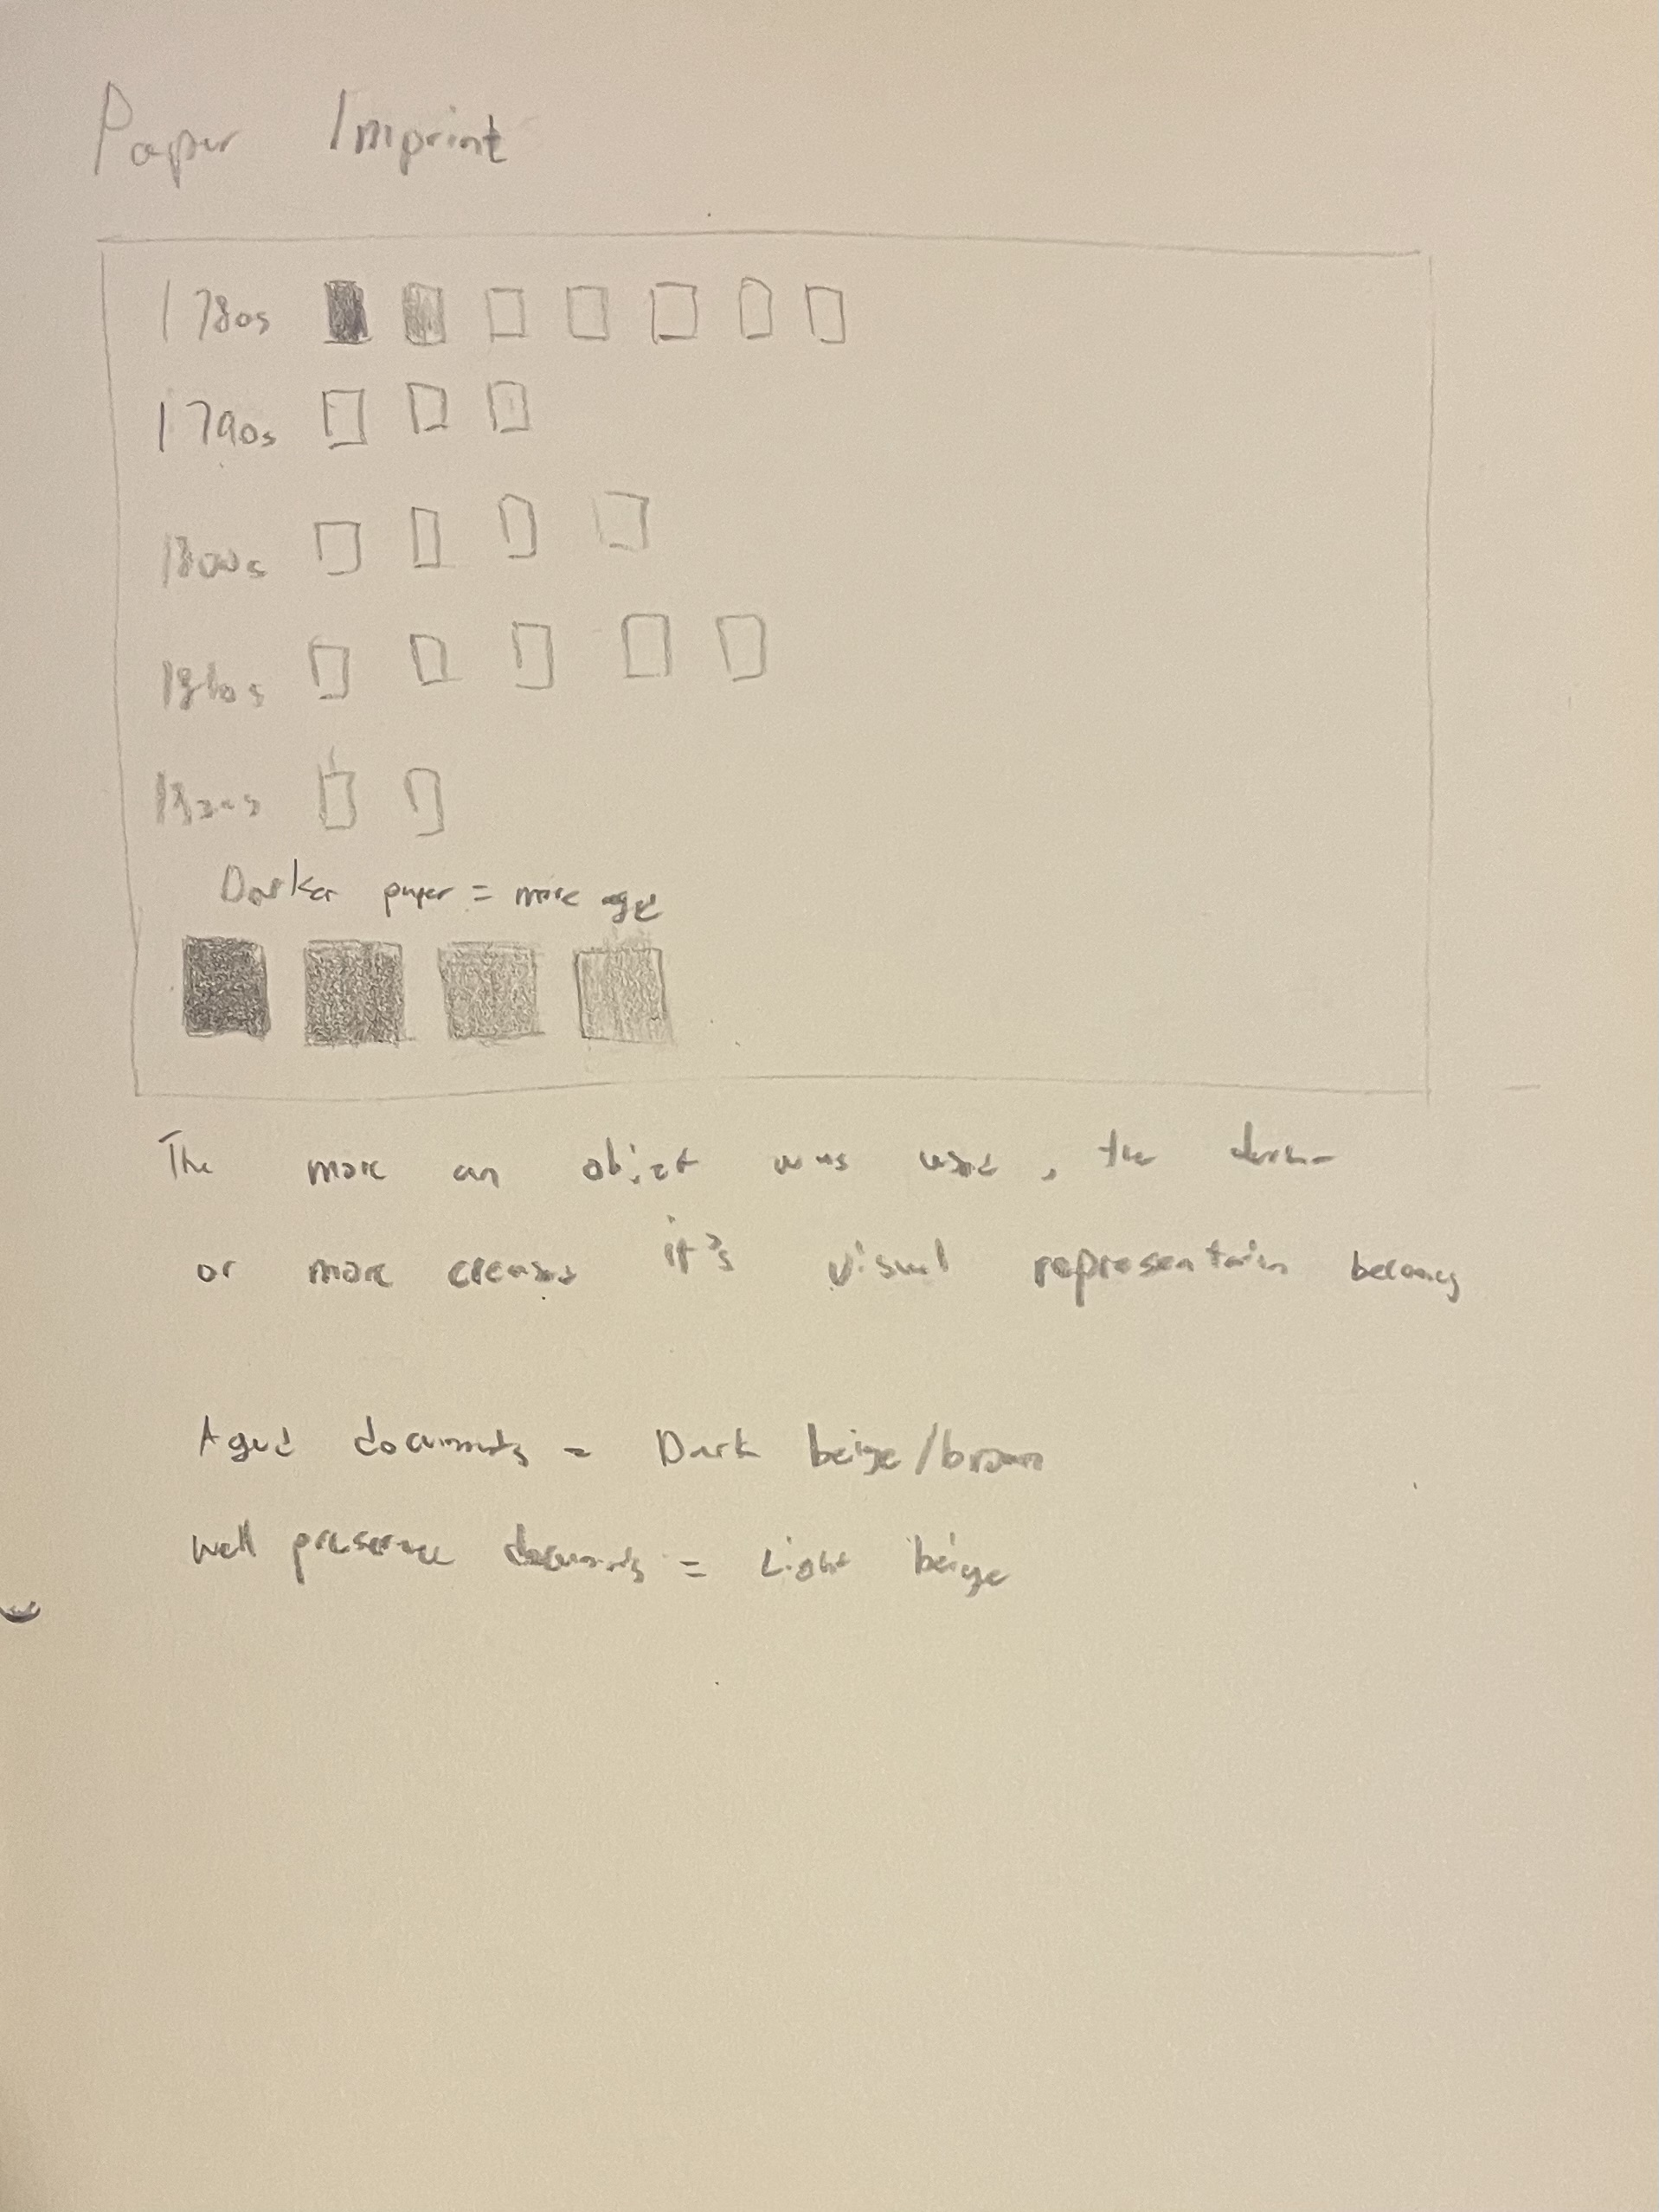 Paper Imprint
1780s
1790s
1800s
1810s
1820s
Darker paper = more age
The more an object was used, the darker
or more creased it's visual representain becomes
Aged documents = Dark beige/brown
Well preserved documents = Light beige